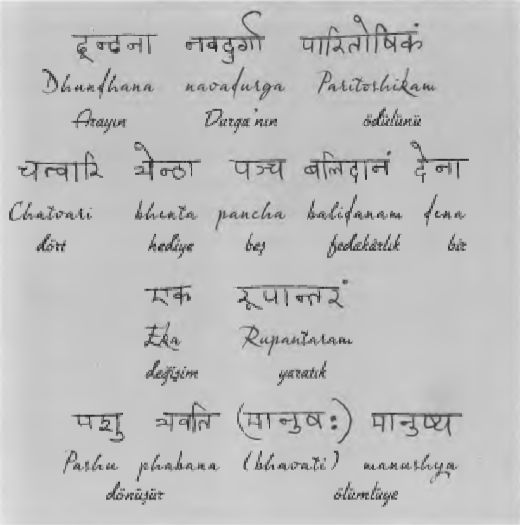 ढून्ढना नवदुर्गा पारितोषिकं
Dhundhana navadurga Paritoshikam
Arayın Durga'nın ödülünü
चत्वारि भेन्ठा पञ्च बलिदानं देना
Chatvari bhenta pancha balidanam dena
dört hediye beş fedakârlık bir
एक रूपान्तरं
Eka Rupantaram
değişim yaratık
पशु भवति (मानुषः) मानुष्य
Pashu phabana (bhavati) manushya
dönüşür ölümlüye